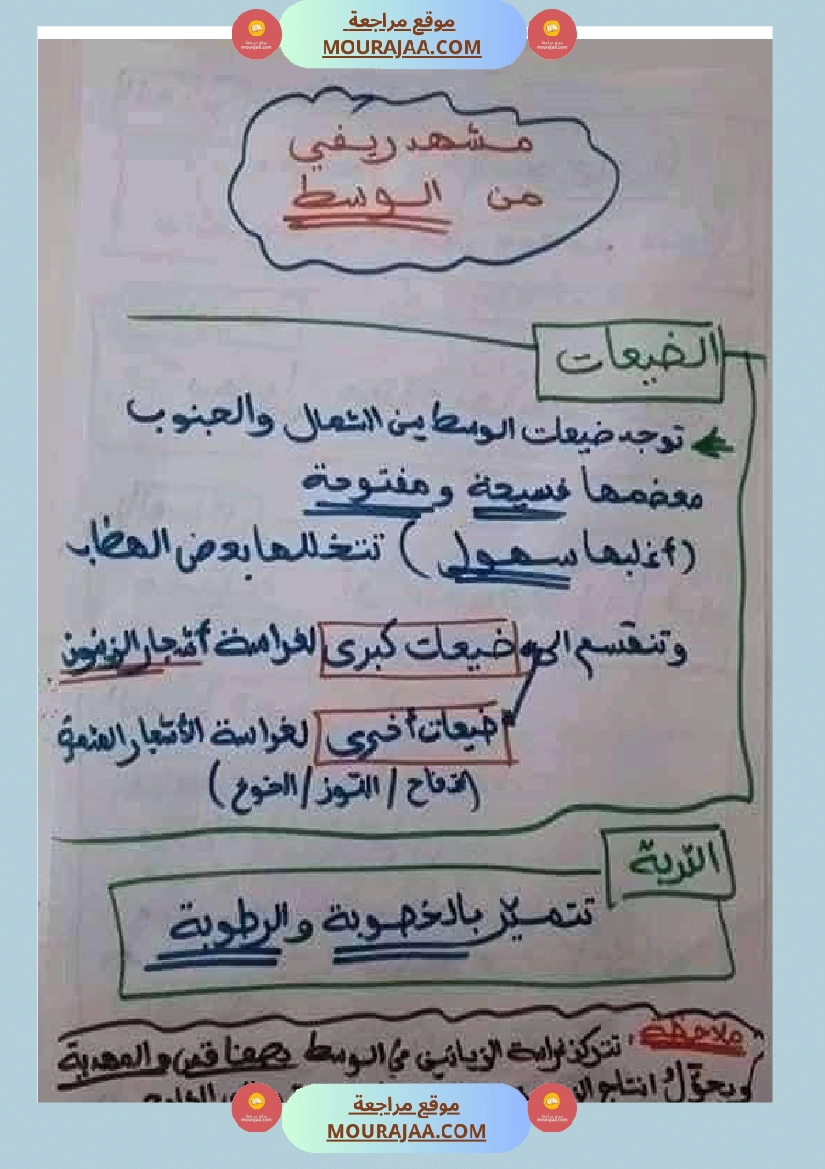 موقع مراجعة
MOURAJAA.COM
مشهد ريفي
من الوسط
الضيعات
توجد ضيعات الوسط بين الشمال والجنوب
معضمها فسيحة ومفتوحة
(أغلبها سهول) تتخللها بعض الهظاب
وتنقسم الى ضيعات كبرى لغراسة أشجار الزيتون
ضيعات أخرى لغراسة الأشجار المثمرة
(التفاح / اللوز / الخوخ)
التربة
تتميّز بالخصوبة والرطوبة
ملاحظة: تتركز غراسة الزياتين في الوسط بصفاقس والمهدية
ويحوّل انتاج
موقع مراجعة
MOURAJAA.COM